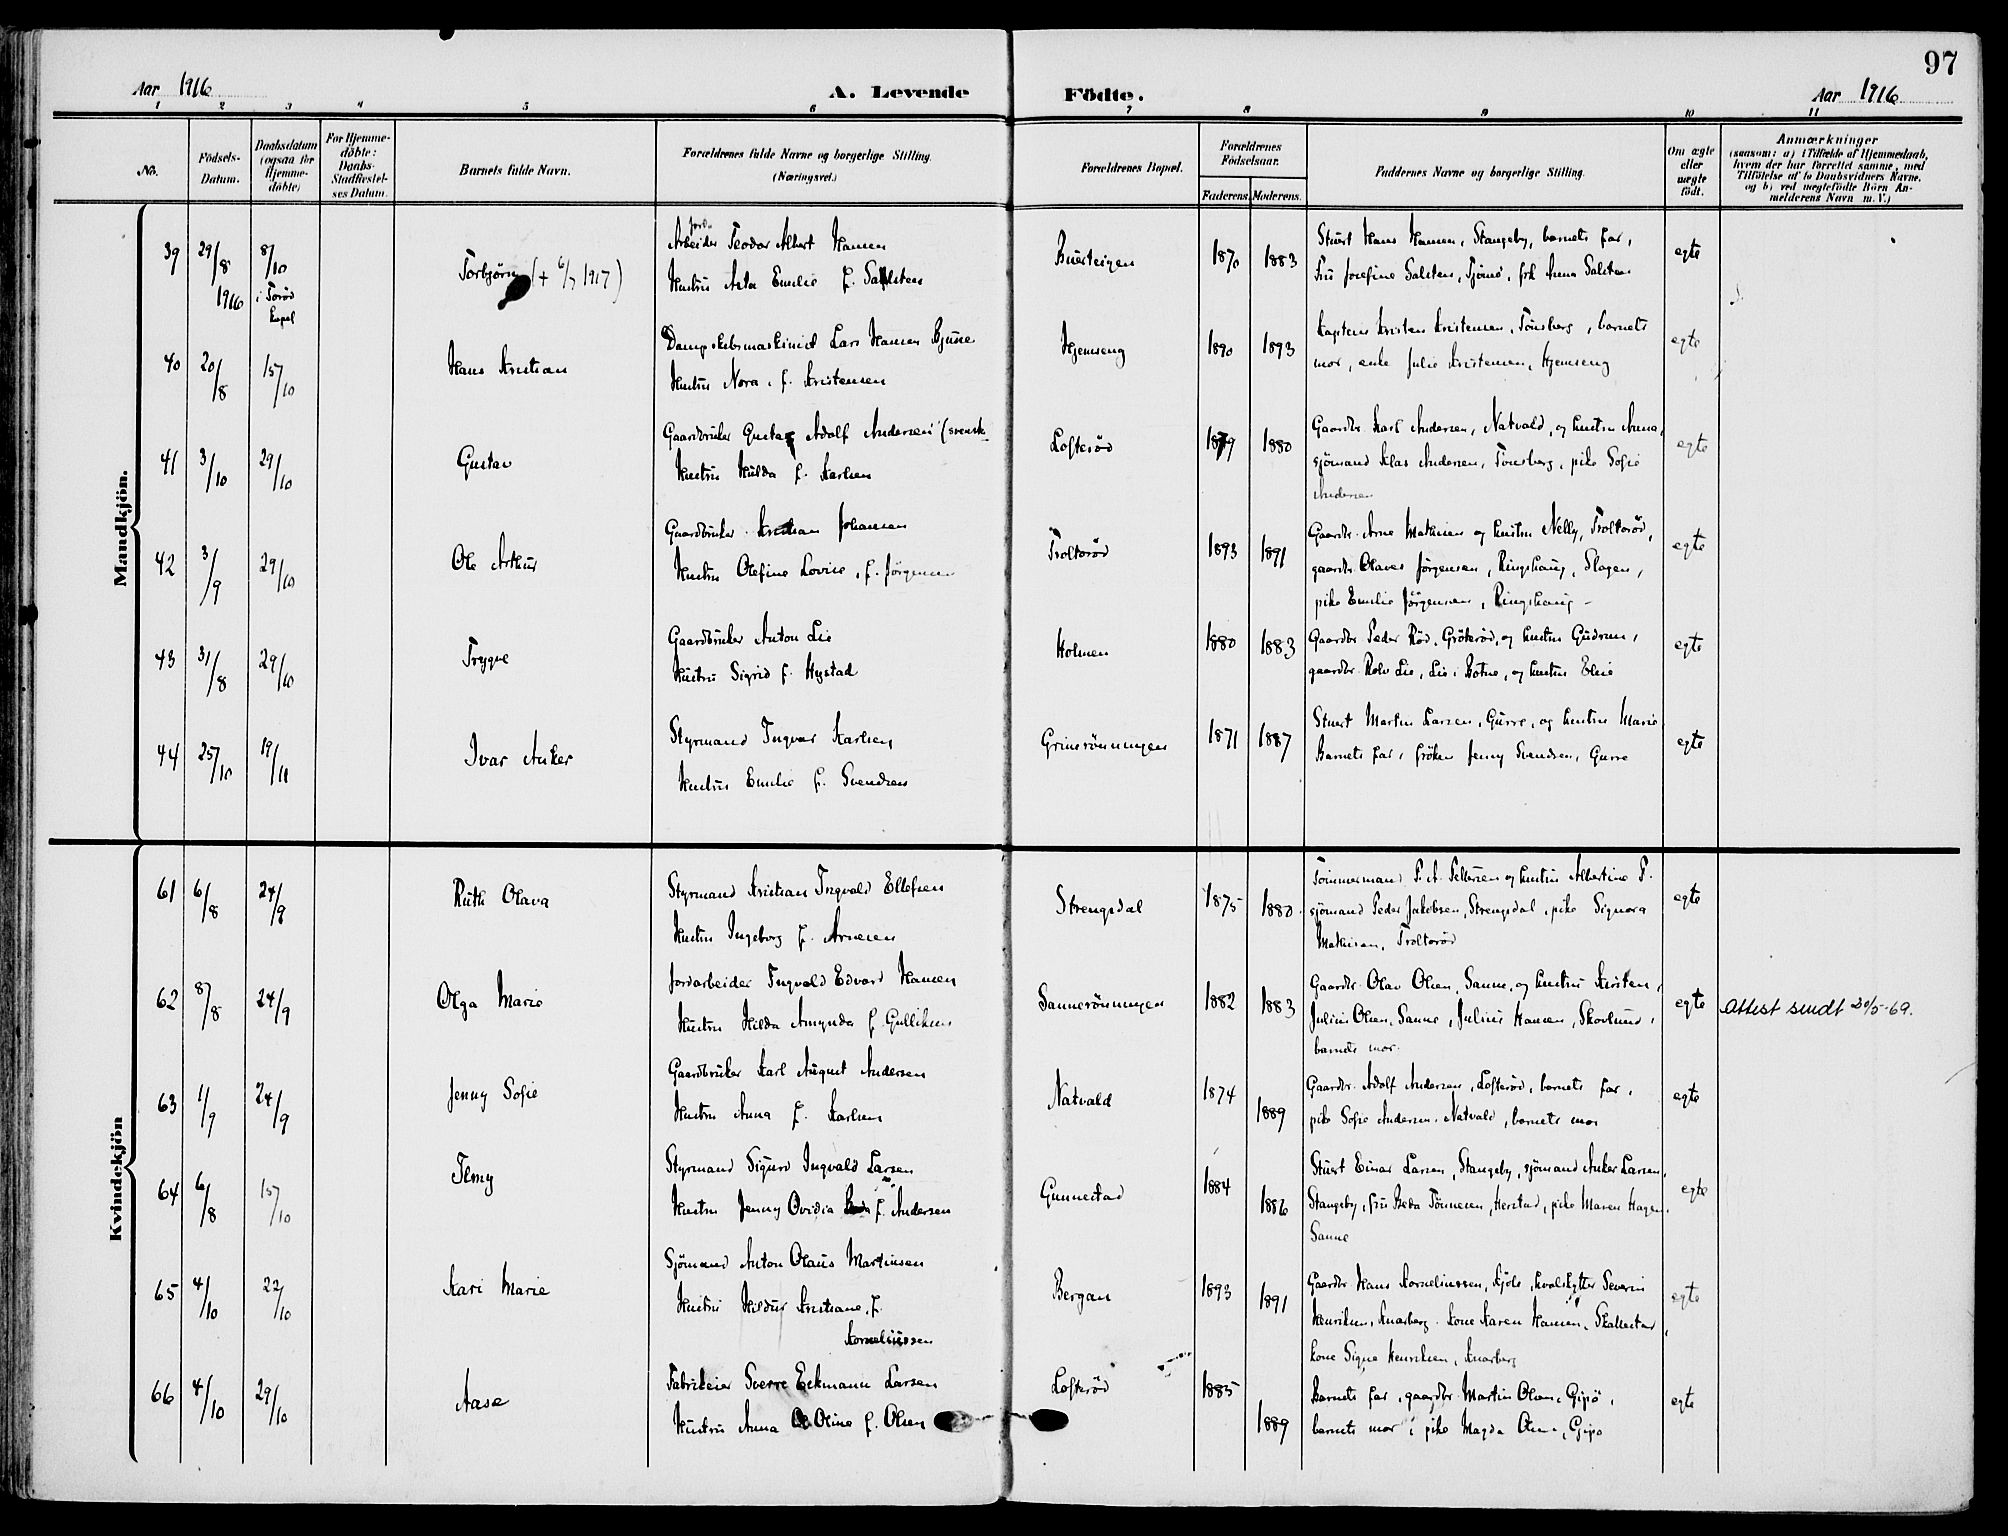 97
Aar 1916
A. Levende Födte.
Aar 1916
1 2 3 4 5 6 7 8 9 10 11
No.
Födsels-Datum.
Daabsdatum (ogsaa for Hjemme-döbte)
For Hjemme-döbte: Daabs-Stadfæstel-ses Datum.
Barnets fulde Navn.
Forældrenes fulde Navne og borgerlige Stilling.
(Næringsvei.)
Forældrenes Bopæl.
Forældrenes Födselsaar.
Faderens. Moderens.
Faddernes Navne og borgerlige Stilling.
Om ægte eller uægte födt.
Anmærkninger
(saasom: a) i Tilfælde af Hjemmedaab, hvem der har forrettet samme, med Tilföielse af to Daabsvidners Navne, og b) ved uægtefödte Börn An-melderens Navn m. V.)
Mandkjön.
39 29/8 1916 8/10 i Torød kapel
Torbjörn (+ 6/7 1917)
jord-
Arbeider Teodor Albert Hansen
Hustru Asta Emilie f. Salsten
Bueteigen 1870 1883
Stuert Hans Hansen, Stangeby, barnets far,
Fru Josefine Salsten, Tjömö, frk Anna Salsten
egte
40 20/8 15/10
Hans Kristian
Dampskibsmaskinist Lars Hansen Bjune
Hustru Nora, f. Kristensen
Hjemseng 1890 1893
Kaptein Kristen Kristensen, Tönsberg, barnets
mor, enke Julie Kristensen, Hjemseng
egte
41 3/10 29/10
Gustav
Gaardbruker Gustav Adolf Andersen (svensk
Hustru Hulda f. Karlsen
Lofteröd 1879 1880
Gaardbr. Karl Andersen, Natvald, og hustru Anna,
sjömand Klas Andersen, Tönsberg, pike Sofie
Andersen
egte
42 3/9 29/10
Ole Arthur
Gaardbruker Kristian Johansen
Hustru Olefine Lovise, f. Jörgensen
Troltöröd 1893 1891
Gaardbr. Arne Mathisen og hustru Nelly, Troltöröd,
gaardbr. Olaves Jörgensen, Ringshaug, Slagen,
pike Emilie Jörgensen, Ringshaug
egte
43 31/8 29/10
Trygve
Gaardbruker Anton Lie
Hustru Sigrid f. Hystad
Holmen 1880 1883
Gaardbr. Peder Röd, Gröteröd, og hustru Gudrun,
gaardbr. Rolv Lie, Lie i Botne, og hustru Elise
egte
44 25/10 19/11
Ivar Anker
Styrmand Ingvar Karlsen
Hustru Emilie f. Svendsen
Grimsrönningen 1871 1887
Stuert Martin Larsen, Gurre, og hustru Marie
Barnets far, fröken Jenny Svendsen, Gurre
egte
Kvindekjön
61 6/8 24/9
Ruth Olava
Styrmand Kristian Ingvald Ellefsen
Hustru Ingeborg f. Arnesen
Strengsdal 1875 1880
Tömmermand P. A. Pettersen og hustru Albertine P.
sjömand Peder Jakobsen, Strengsdal, pike Signora
Mathisen, Troltöröd
egte
62 8/8 24/9
Olga Marie
Jordarbeider Ingvald Edvard Hansen
Hustru Hilda Amynda f. Gulliksen
Sannerönningen 1882 1883
Gaardbr. Olav Olsen, Sanne, og hustru Kirsten,
Julius Olsen, Sanne, Julius Hansen, Skovlund,
barnets mor.
egte
Attest sendt 20/5-69.
63 1/9 24/9
Jenny Sofie
Gaardbruker Karl August Andersen
Hustru Anna f. Karlsen
Natvald 1874 1889
Gaardbr. Adolf Andersen, Lofteröd, barnets far,
pike Sofie Andersen, Natvald, barnets mor
egte
64 6/8 15/10
Jenny
Styrmand Sigurd Ingvald Larsen
Hustru Jenny Ovidia f. Andersen
Gunnestad 1884 1886
Stuert Einar Larsen, Stangeby, sjömand Anker Larsen,
Stangeby, fru Beda Tönnesen, Herstad, pike Maren Hagen,
Sanne
egte
65 4/10 22/10
Kari Marie
Sjömand Anton Olaus Martinsen
Hustru Hildur Kristiane, f.
Korneliussen
Bergan 1893 1891
Gaardbr. Hans Korneliussen, Kjöle, hvalskytter Severin
Henriksen, Knarberg. kone Karen Hansen, Skallestad,
kone Signe Henriksen, Knarberg
egte
66 4/10 29/10
Aase
Fabrikeier Sverre Eckmann Larsen
Hustru Anna Oline f. Olsen
Lofteröd 1885 1889
Barnets far, gaardbr. Martin Olsen, Gipö,
barnets mor, pike Magda Olsen, Gipö
egte